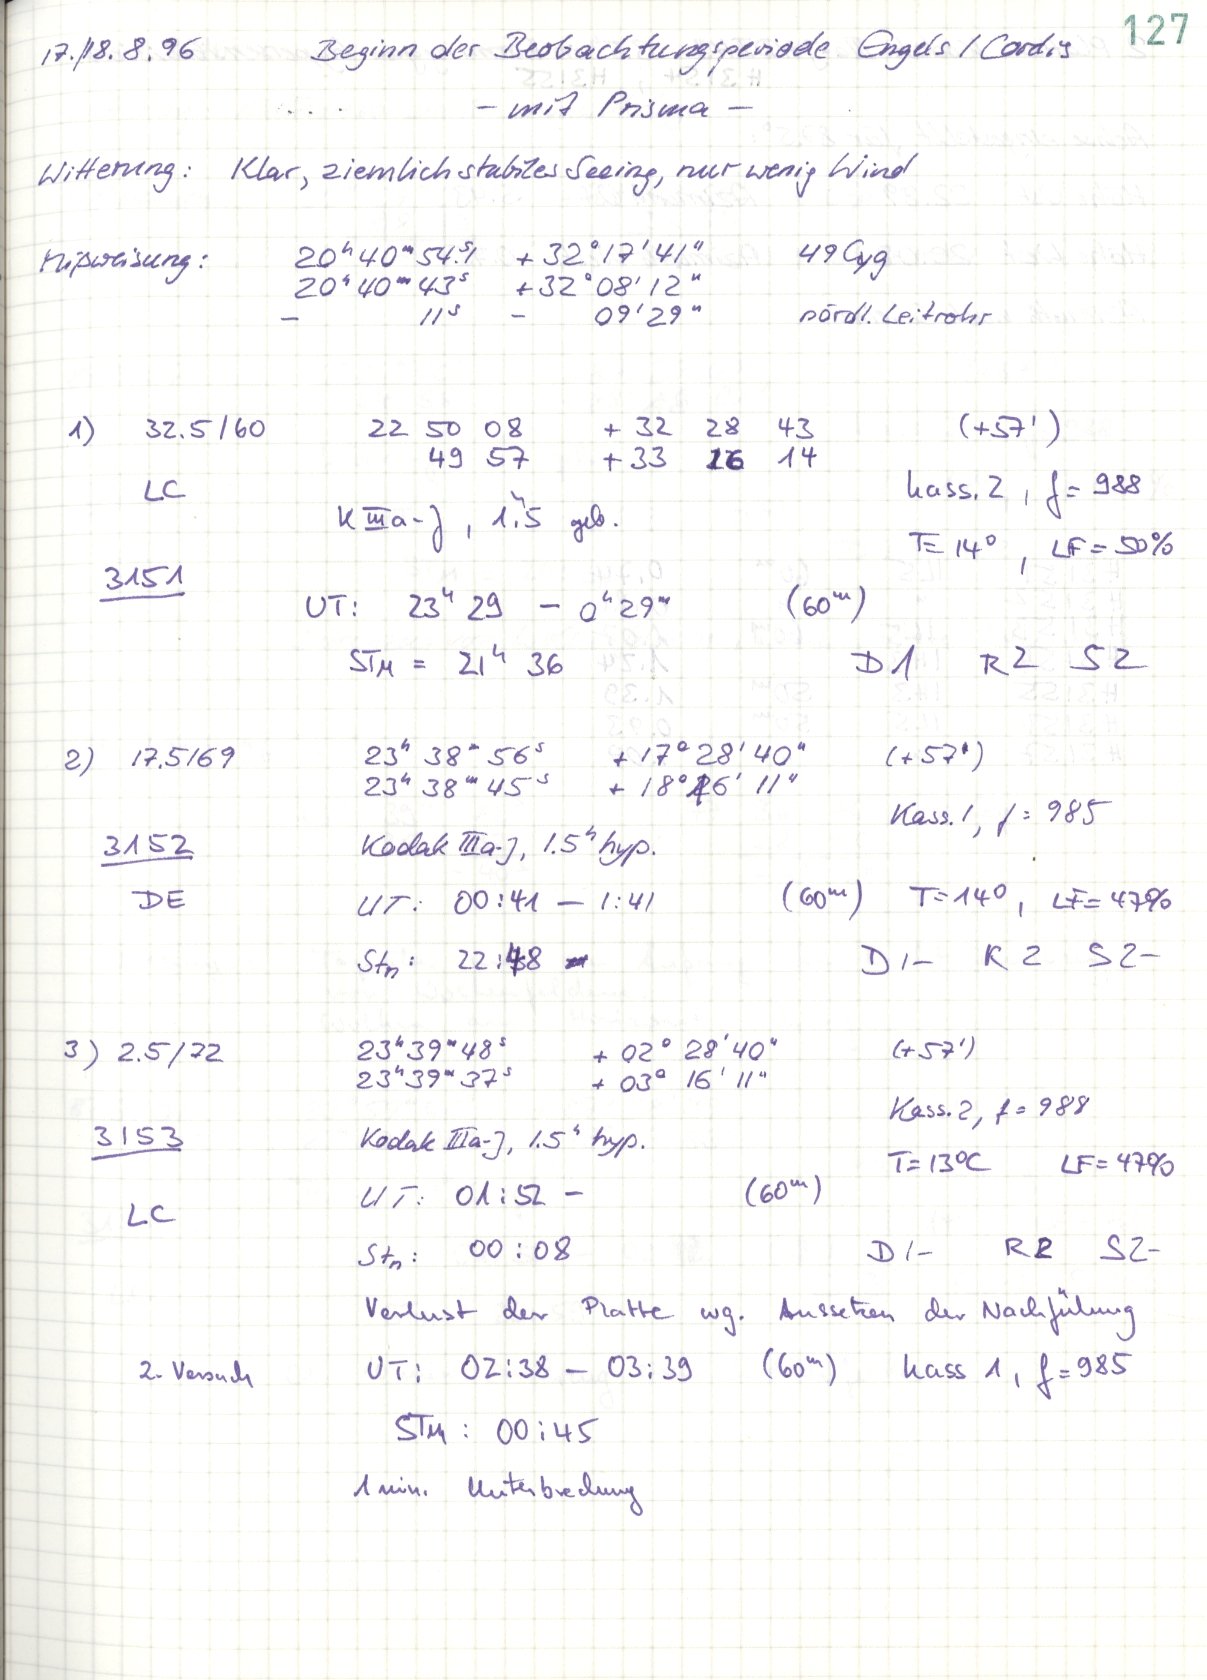 127
17./18.8.96 Beginn der Beobachtungsperiode Engels / Cordis
- mit Prisma -
Witterung: Klar, ziemlich stabiles Seeing, nur wenig Wind
Mißweisung: 20ʰ40ᵐ54ˢ.1 +32°17'41" 49 Cyg
20ʰ40ᵐ43ˢ +32°08'12"
- 11ˢ - 09'29" nördl. Leitrohr
1) 32.5/60 22 50 08 + 32 28 43 (+57')
49 57 + 33 16 14
LC Kass. 2, f = 988
K IIIa-J, 1.5ʰ geb.
T= 14°, LF = 50%
3151
UT: 23ʰ 29 - 0ʰ 29ᵐ (60ᵐ)
STM = 21ʰ 36 D1 R2 S2
2) 17.5/69 23ʰ 38ᵐ 56ˢ +17°28'40" (+57')
23ʰ 38ᵐ 45ˢ + 18°16' 11"
Kass. 1, f = 985
3152 Kodak IIIa-J, 1.5ʰ hyp.
DE UT: 00:41 - 1:41 (60ᵐ) T=14°, LF=47%
Stn: 22:48 D1- R2 S2-
3) 2.5/72 23ʰ39ᵐ48ˢ + 02° 28'40" (+57')
23ʰ39ᵐ37ˢ + 03° 16' 11"
Kass. 2, f = 988
3153 Kodak IIIa-J, 1.5ʰ hyp.
T=13°C LF=47%
UT: 01:52 - (60ᵐ)
LC
Stn: 00:08 D1- R2 S2-
Verlust der Platte wg. Aussetzen der Nachfülung
2. Versuch UT: 02:38 - 03:39 (60ᵐ) Kass 1, f=985
STM: 00:45
1 min. Unterbrechung